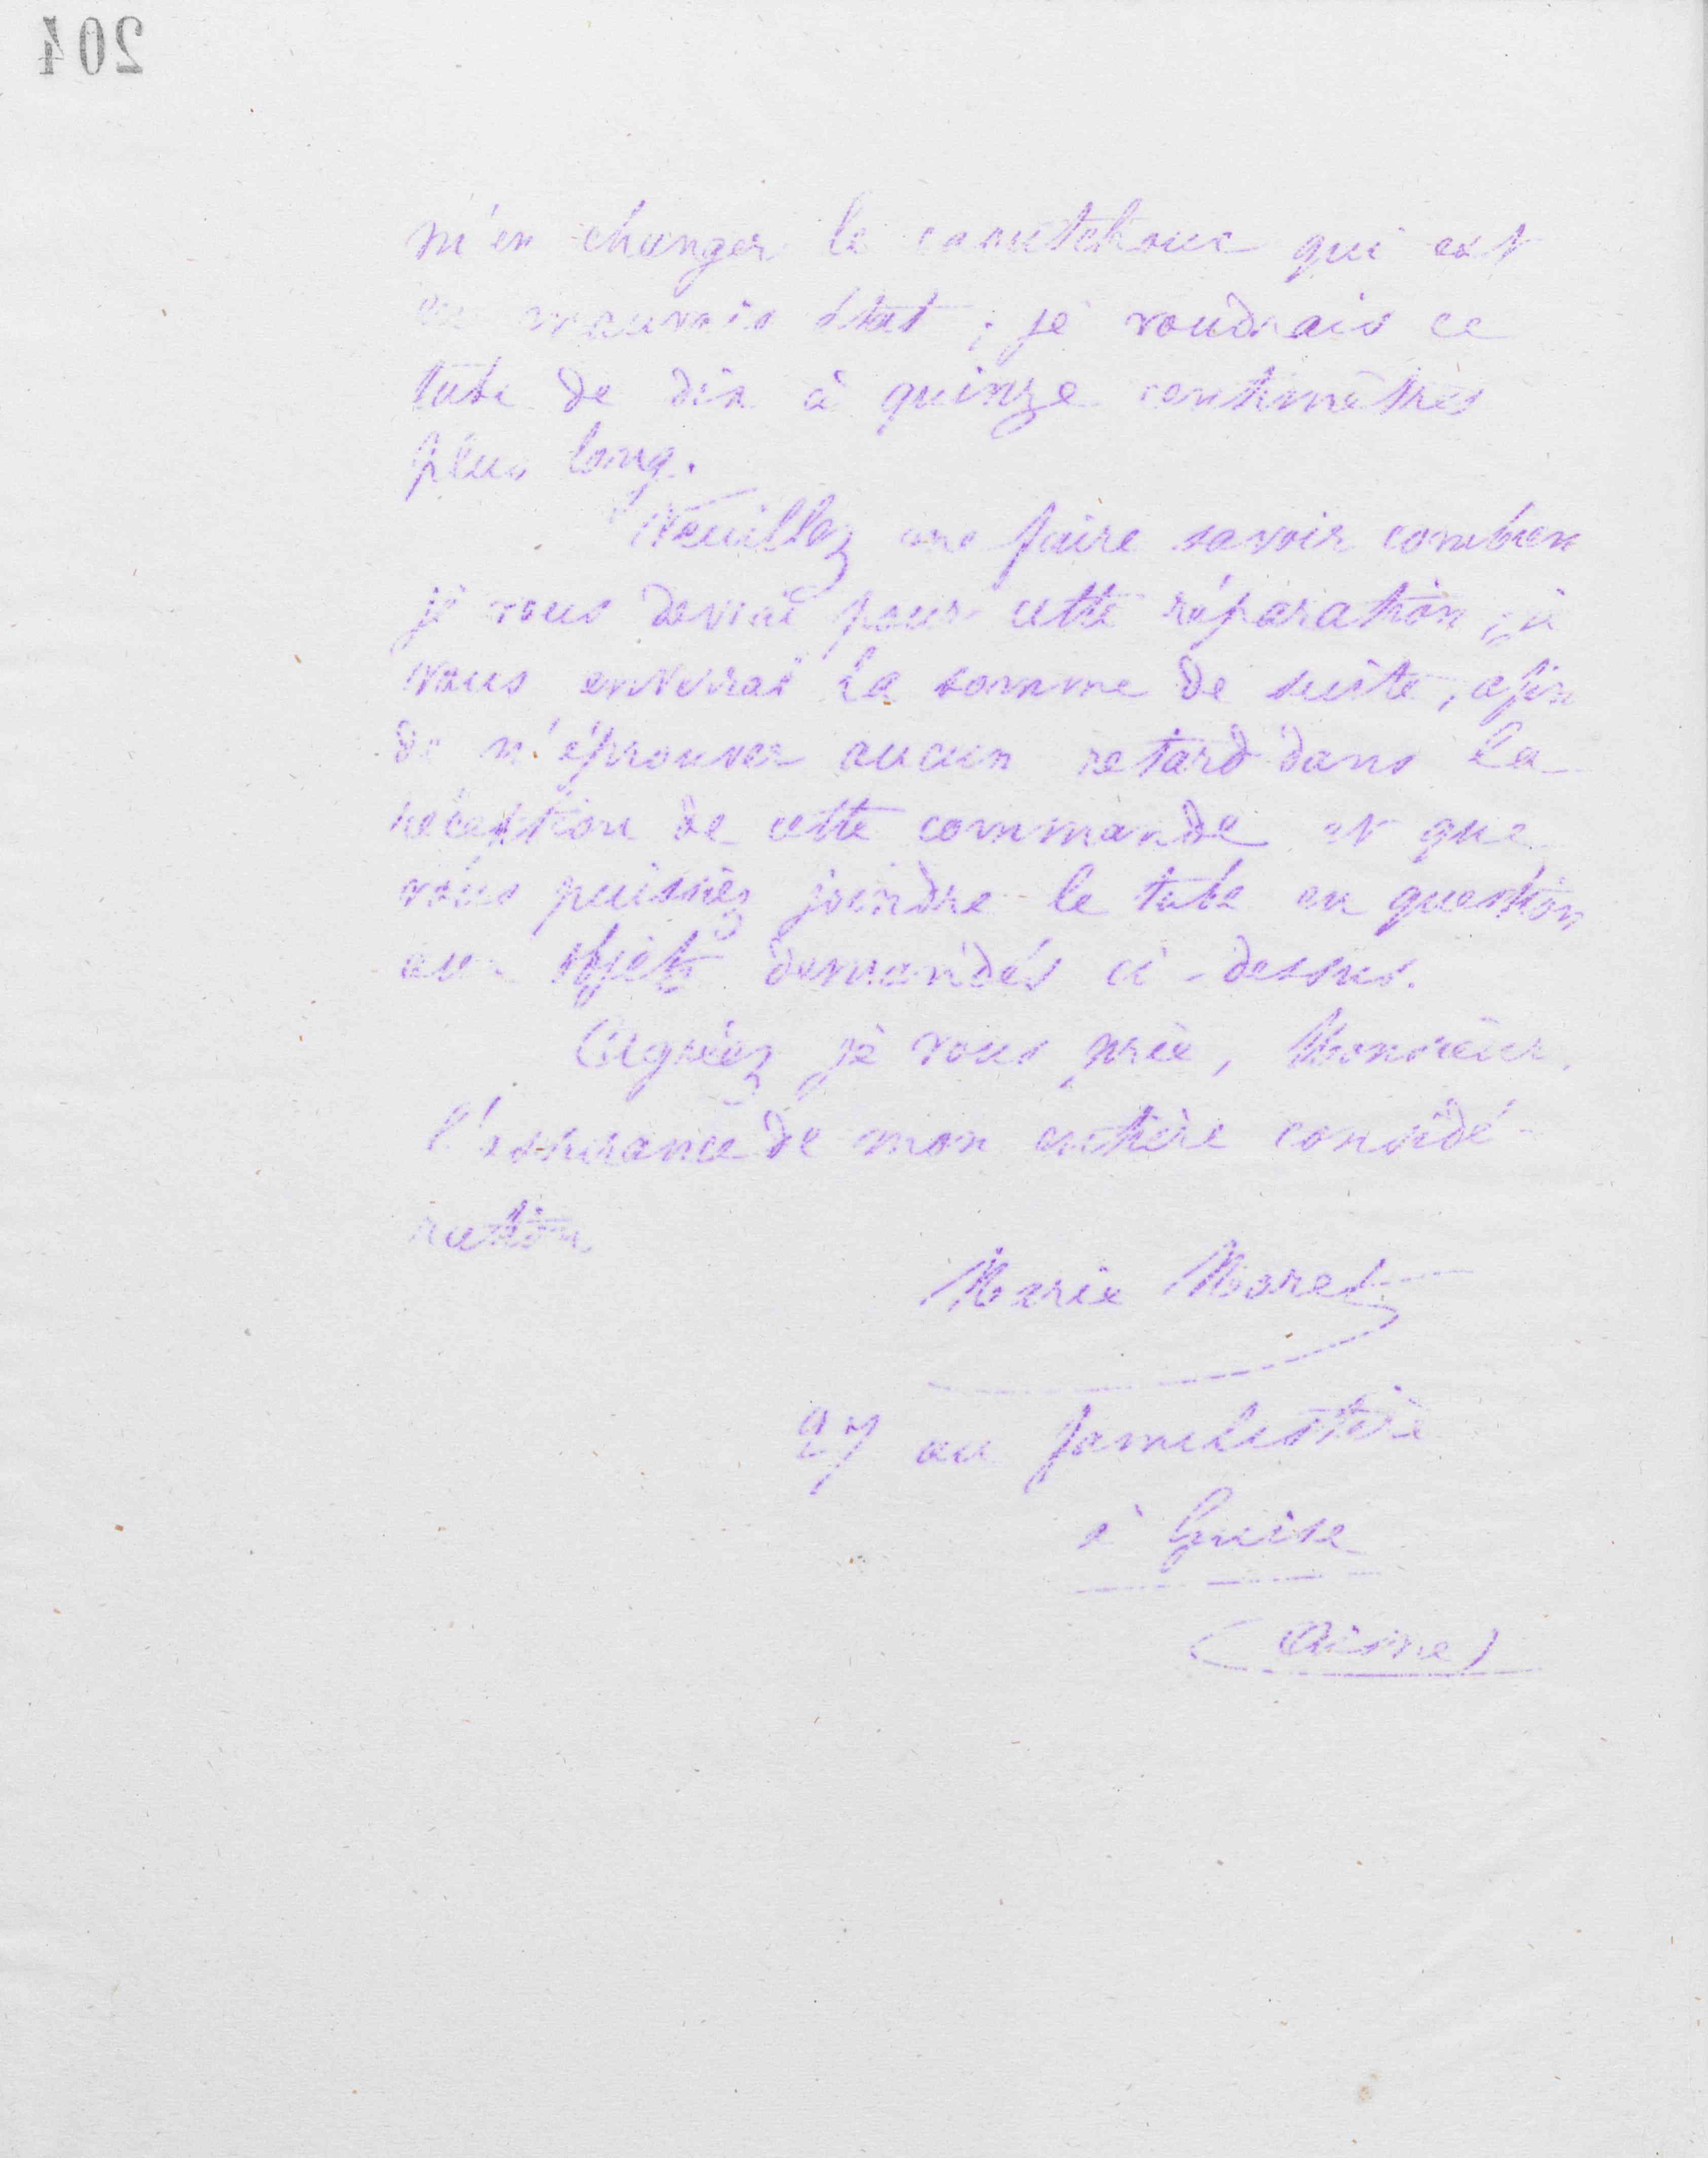 204
m'en changer le caoutchouc qui est
en mauvais état ; je voudrais ce
tube de dix à quinze centimètres
plus long.
Veuillez me faire savoir combien
je vous devrai pour cette réparation, je
vous enverrai la somme de suite, afin
de n'éprouver aucun retard dans la
réception de cette commande et que
vous puissiez joindre le tube en question
aux objets demandés ci-dessus.
Agréez je vous prie, Monsieur,
l'assurance de mon entière considé-
ration
Marie Moret
au familistère
à Guise
(Aisne)